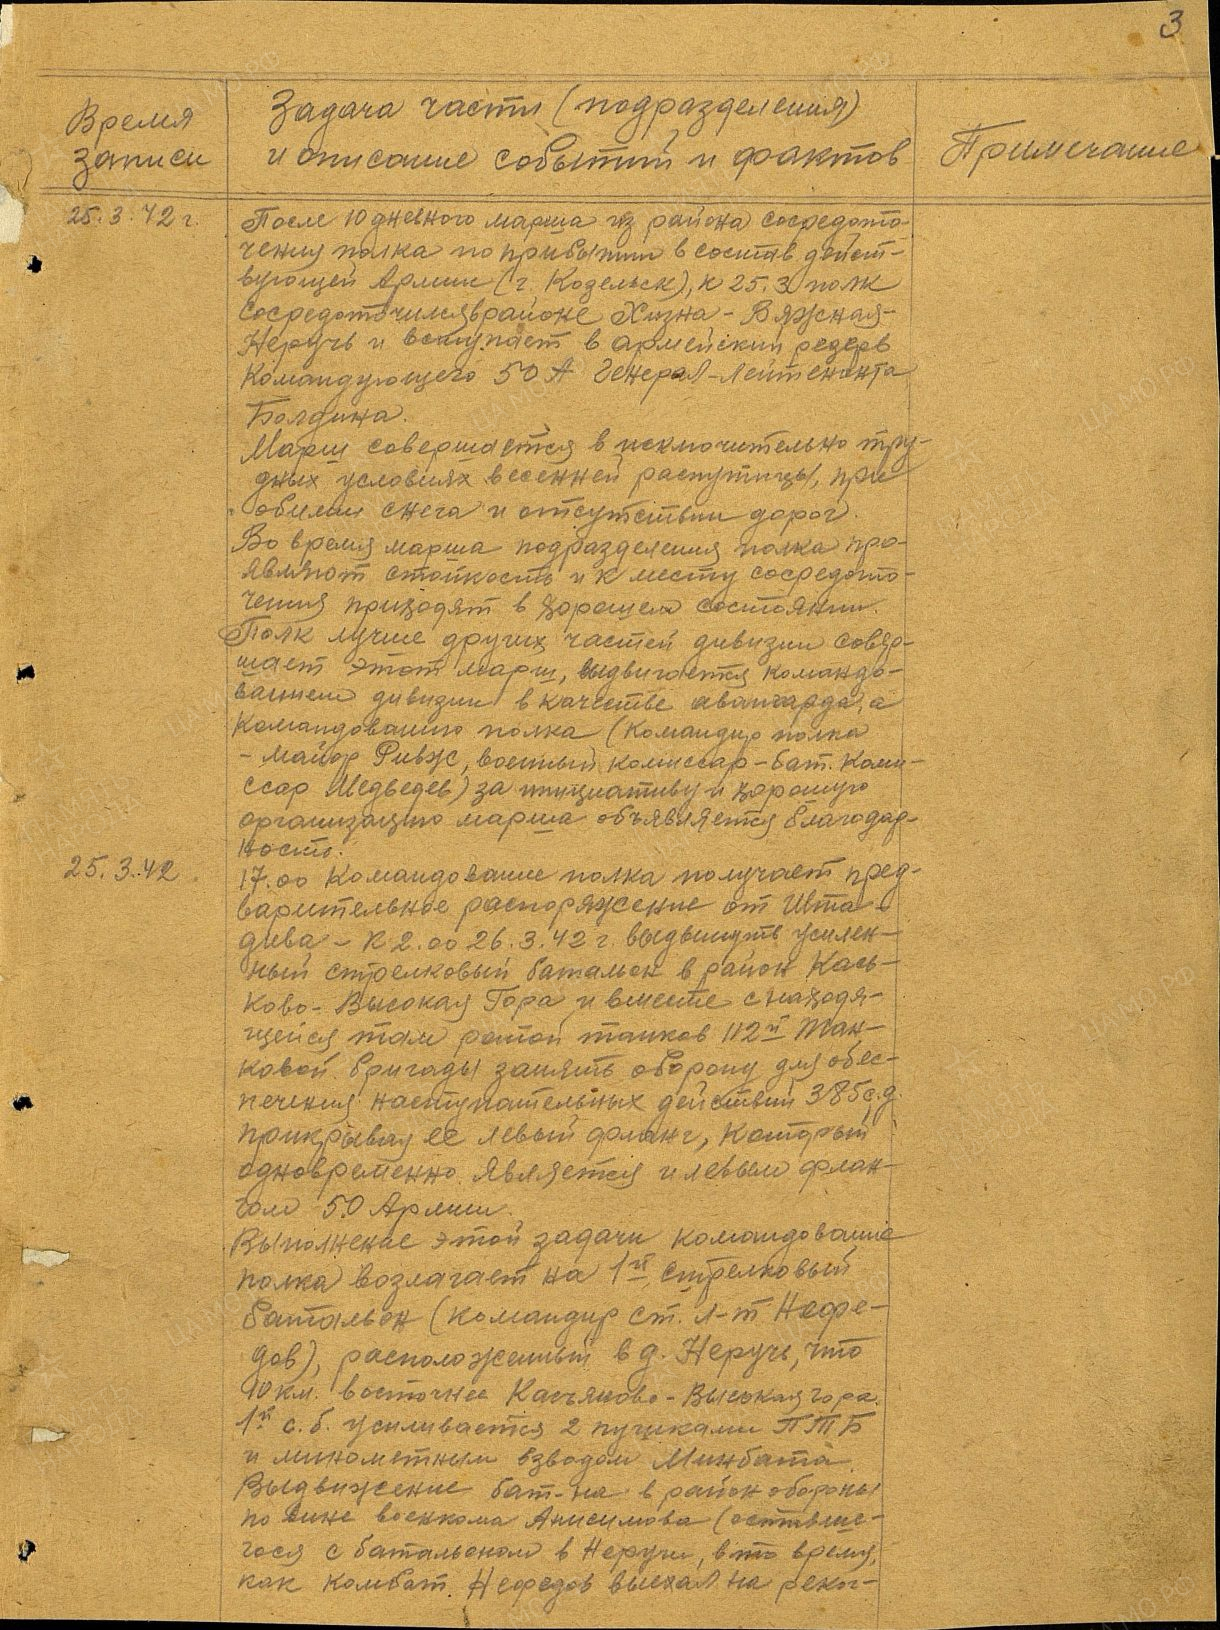 3
Время записи
Задача части (подразделения)
и описание событий и фактов
Примечание
25.3.42 г.
После 10 дневного марша из района сосредото-
чения полка по прибытии в состав дейст-
вующей Армии (г. Козельск), к 25.3 полк
сосредоточился в районе Хизна - Вяжная -
Неручь и вступает в армейский резерв
Командующего 50 А Генерал-Лейтенанта
Болдина.
Марш совершается в исключительно тру-
дных условиях весенней распутицы, при
обилии снега и отсутствии дорог.
Во время марша подразделения полка про-
являют стойкость и к месту сосредото-
чения приходят в хорошем состоянии.
Полк лучше других частей дивизии совер-
шает этот марш, выдвигается командо-
ванием дивизии в качестве авангарда, а
командованию полка (командир полка
- майор Ривж, военный комиссар - бат. Коми-
ссар Медведев) за инициативу и хорошую
организацию марша объявляется благодар-
ность.
25.3.42
17.00 Командование полка получает пред-
варительное распоряжение от Шта-
дива - к 2.00 26.3.42 г. выдвинуть усилен-
ный стрелковый батальон в район Кась-
ково - Высокая Гора и вместе с находя-
щейся там ротой танков 112й Тан-
ковой бригады занять оборону для обес-
печения наступательных действий 385 с.д.
прикрывая ее левый фланг, который
одновременно является и левым флан-
гом 50 Армии.
Выполнение этой задачи командование
полка возлагает на 1й стрелковый
батальон (командир ст. л-т Нефе-
дов), расположенный в д. Неручь, что
10 км. восточнее Касьяново - Высокая гора.
1й с.б. усиливается 2 пушками ПТБ
и минометным взводом Минбата.
Выдвижение бат-на в район обороны
по вине военкома Анисимова (оставше-
гося с батальоном в Неручи, в то время,
как комбат. Нефедов выехал на реког-